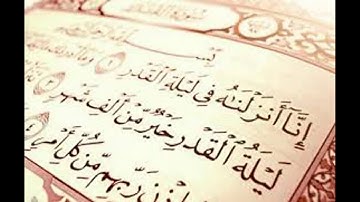 بِسْـ
إِنَّآ أَنزَلْنَٰهُ فِي لَيْلَةِ ٱلْقَدْرِ ١ وَمَآ أَدْ
لَيْلَةُ ٱلْقَدْرِ خَيْرٌ مِّنْ أَلْفِ شَهْرٍ ٣
رَبِّهِم مِّن كُلِّ أَمْرٍ ٤